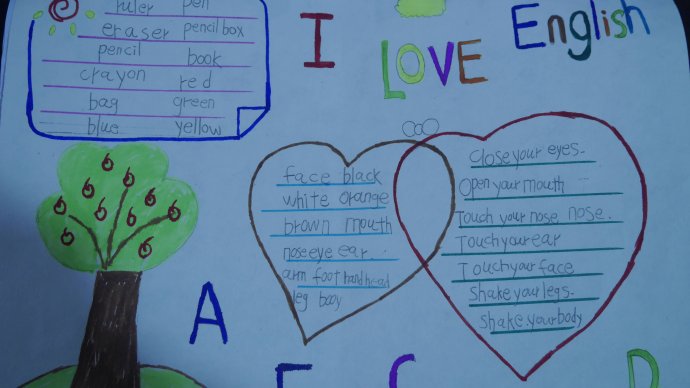 ruler pen
eraser pencil box
pencil book
crayon red
bag green
blue yellow
I
LOVE
English
face black
white orange
brown mouth
nose eye ear.
arm foot hand head
leg body
Close your eyes.
Open your mouth
Touch your nose nose.
Touch your ear
Touch your face
Shake your legs.
shake your body
A
C
D